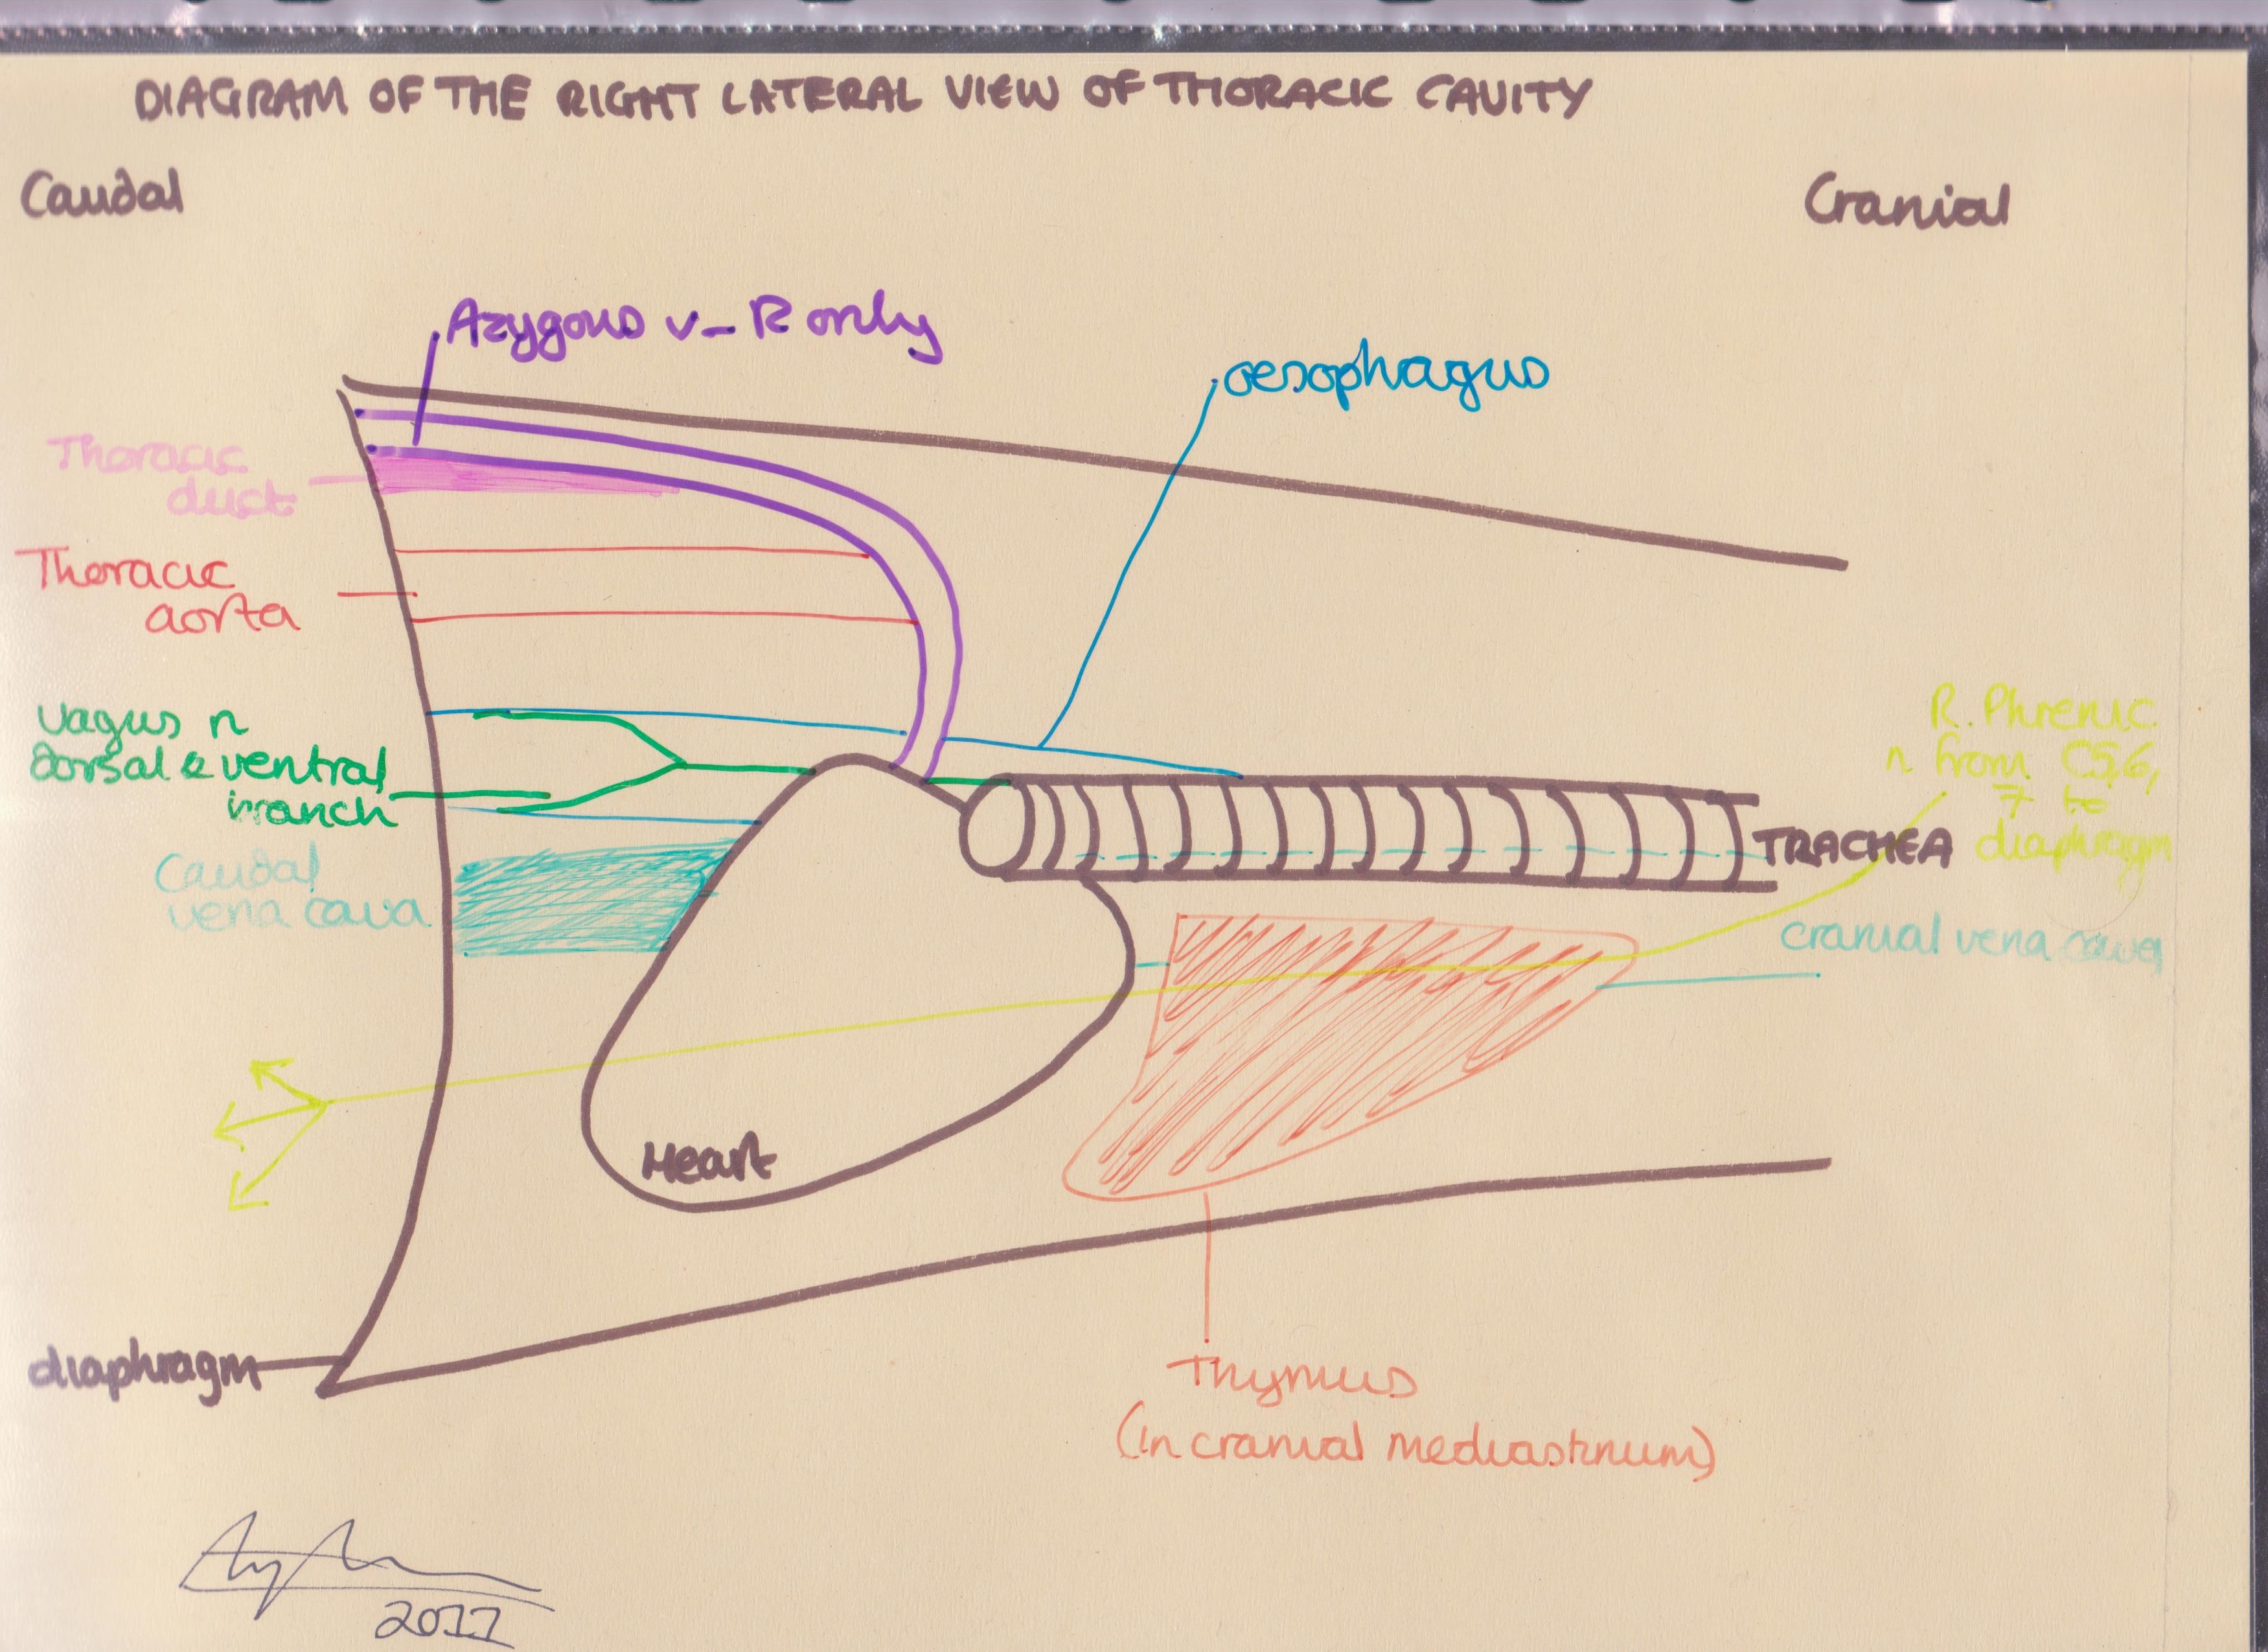 DIAGRAM OF THE RIGHT LATERAL VIEW OF THORACIC CAVITY
Caudal
Cranial
Azygous v - R only
oesophagus
Thoracic
duct
Thoracic
aorta
Vagus n
dorsal & ventral
branch
R. Phrenic
n from C5,6,
7 to
diaphragm
TRACHEA
Caudal
vena cava
cranial vena cava
Heart
diaphragm
Thymus
(in cranial mediastinum)
2011